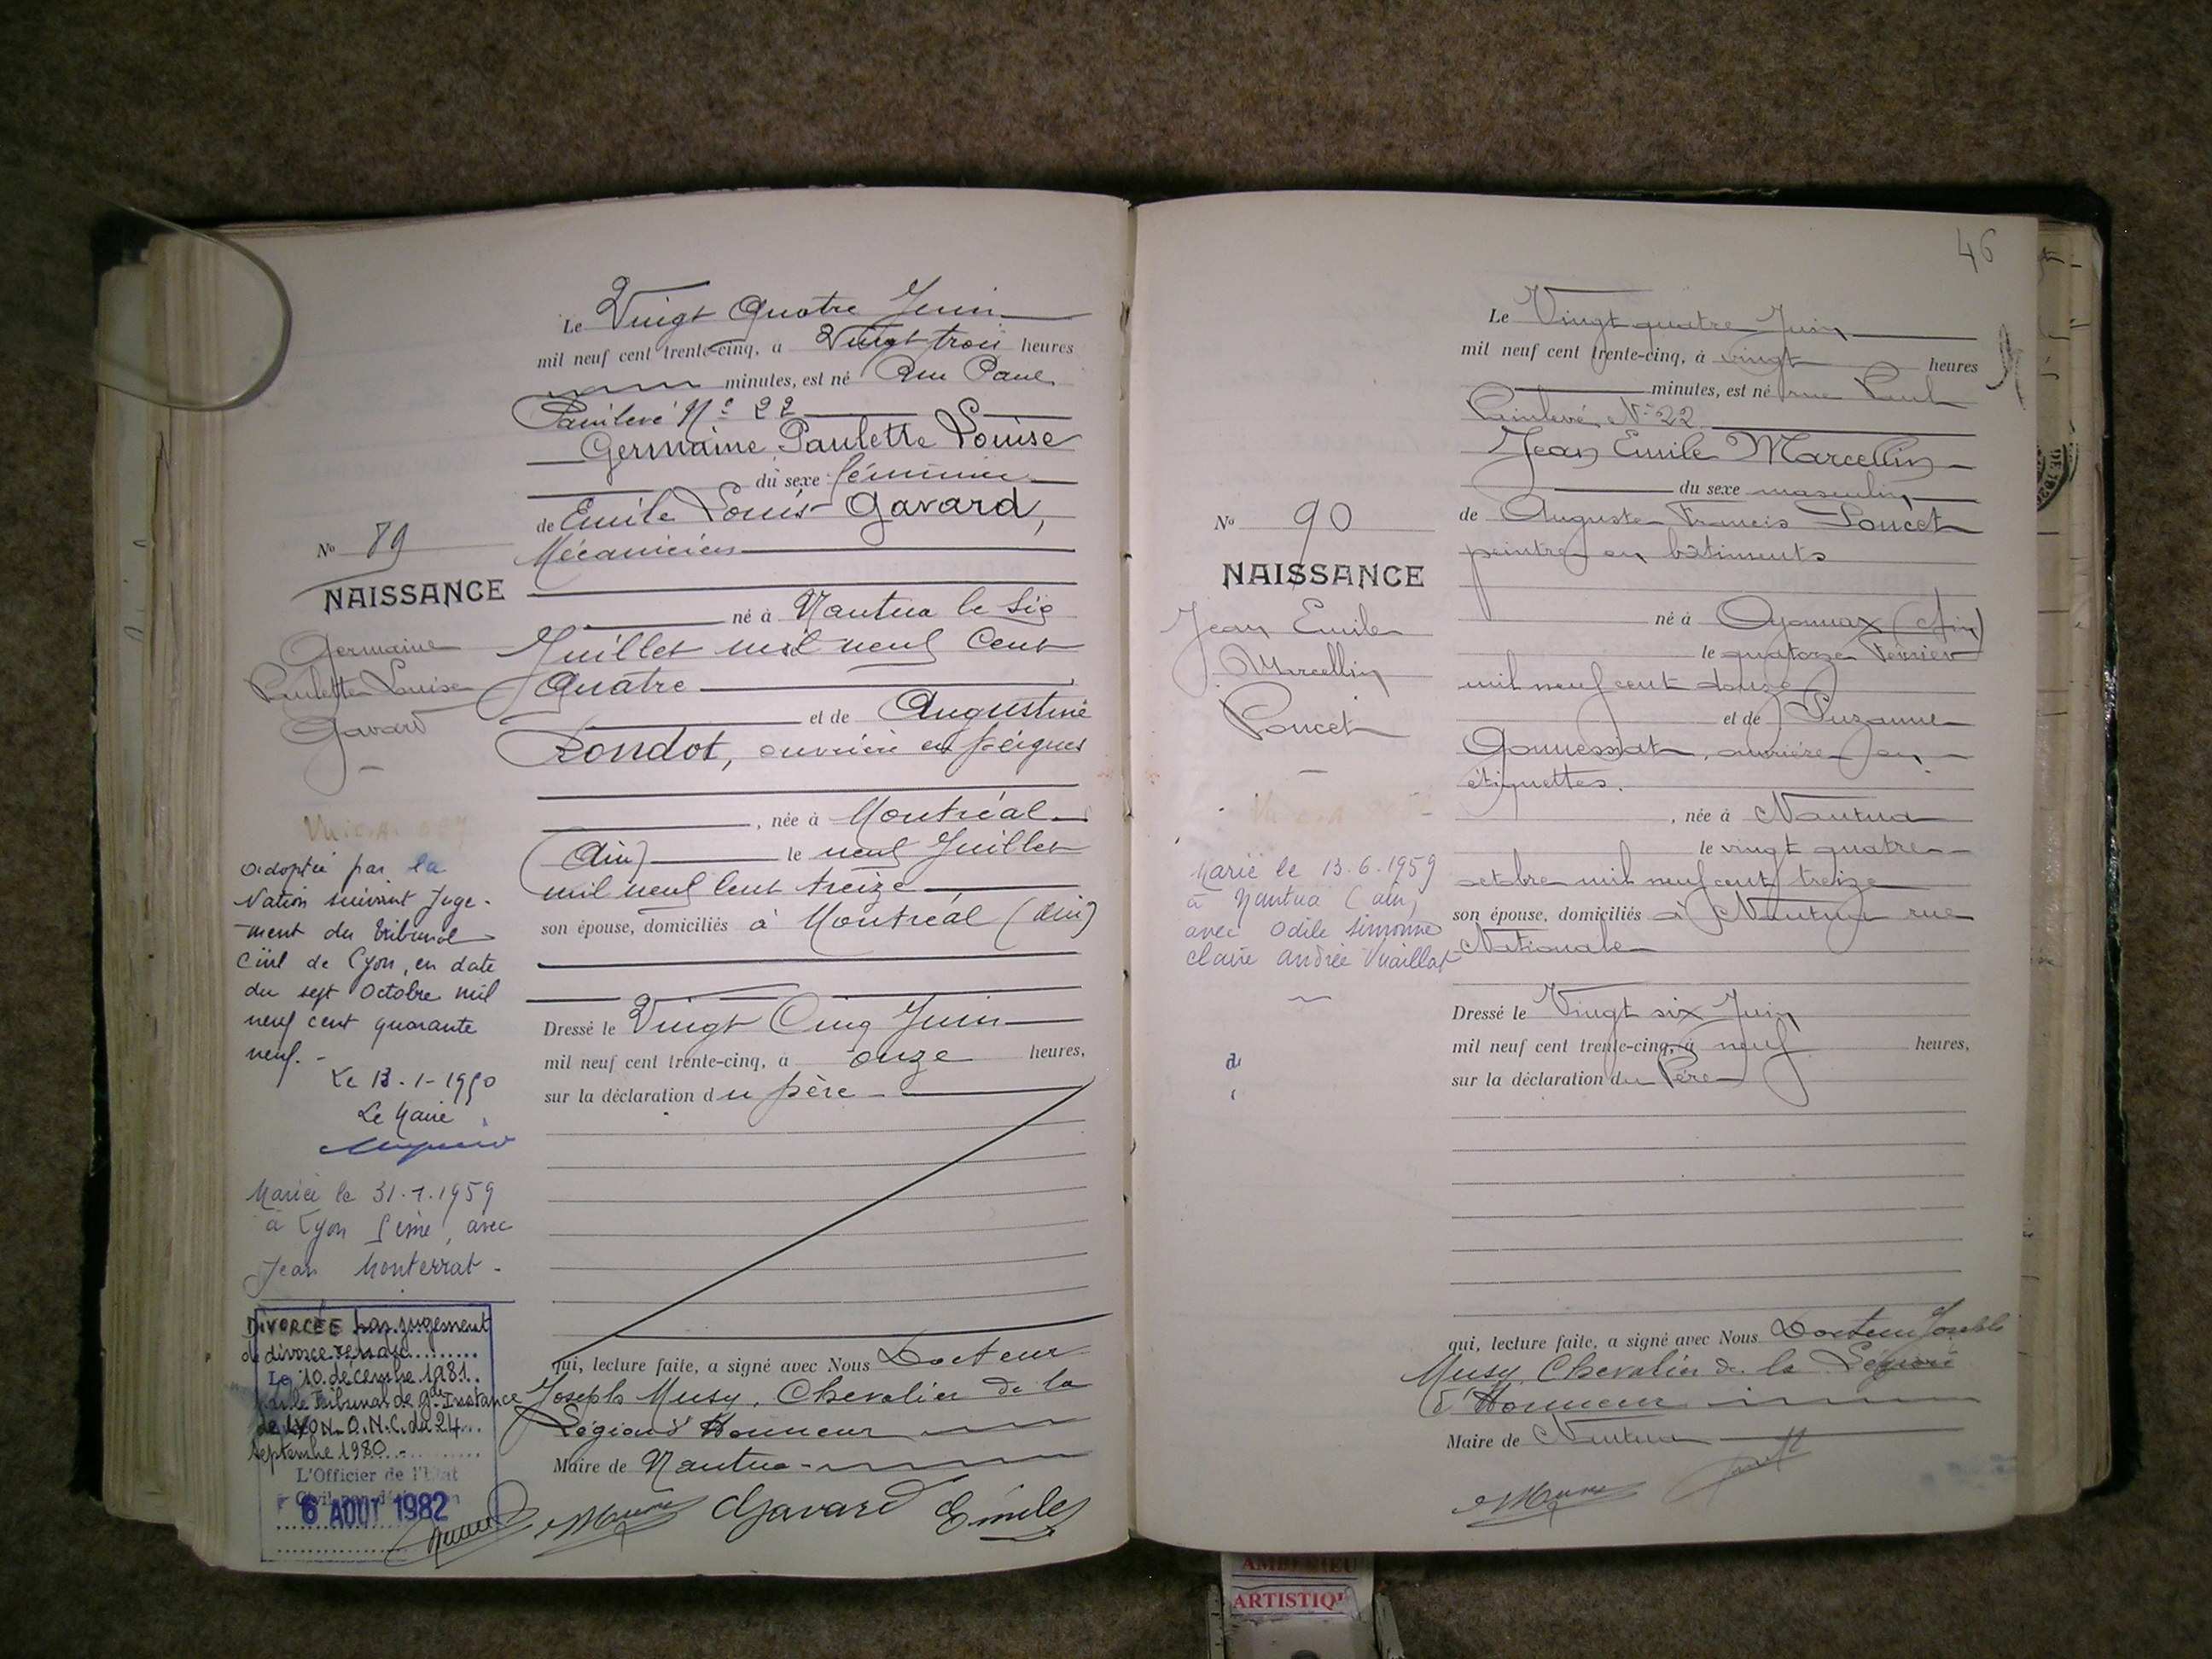 Le Vingt Quatre Juin
mil neuf cent trente-cinq, à Vingt trois heures
minutes, est né Rue Paul
Painlevé N° 22
Germaine Paulette Louise
du sexe féminin
de Emile Louis Gavard,
Mécanicien
né à Nantua le Six
Juillet mil neuf Cent
Quatre
et de Augustine
Rondot, ouvrière en peignes
, née à Montréal
(Ain) le neuf Juillet
mil neuf Cent treize
son épouse, domiciliés à Montréal (Ain)
Dressé le Vingt Cinq Juin
mil neuf cent trente-cinq, à onze heures,
sur la déclaration du père
qui, lecture faite, a signé avec Nous Docteur
Joseph Musy, Chevalier de la
Légion d'Honneur
Maire de Nantua
Gavard Emile
N° 89
NAISSANCE
Germaine
Paulette Louise
Gavard
adoptée par la
Nation suivant Juge-
-ment du tribunal
Civil de Lyon, en date
du sept Octobre mil
neuf cent quarante
neuf. -
Le 13-1-1950
Le Maire
Mariée le 31.1.1959
à Lyon 5eme, avec
Jean Monterrat -
DIVORCÉE par jugement
de divorce rendu
Le 10 décembre 1981.
par le Tribunal de gde Instance
de LYON. O.N.C. du 24
septembre 1980.-
L'Officier de l'Etat
Civil par délégation
6 AOUT 1982
46
Le Vingt quatre Juin
mil neuf cent trente-cinq, à vingt heures
minutes, est né rue Paul
Painlevé, N° 22
Jean Emile Marcellin
du sexe masculin
de Auguste Francis Poncet
peintre en bâtiments
né à Oyonnax (Ain)
le quatorze Février
mil neuf cent douze
et de Suzanne
Gonnessiat, ouvrière en
étiquettes.
, née à Nantua
le vingt quatre
octobre mil neuf cent treize
son épouse, domiciliés à Nantua rue
Nationale
Dressé le Vingt six Juin
mil neuf cent trente-cinq, à neuf heures,
sur la déclaration du Père
qui, lecture faite, a signé avec Nous Docteur Joseph
Musy, Chevalier de la Légion
d'Honneur
Maire de Nantua
N° 90
NAISSANCE
Jean Emile
Marcellin
Poncet
Marié le 13.6.1959
à Nantua (ain)
avec Odile Simonne
Claire Andrée Vuaillat
AMBERIEU
ARTISTIQU